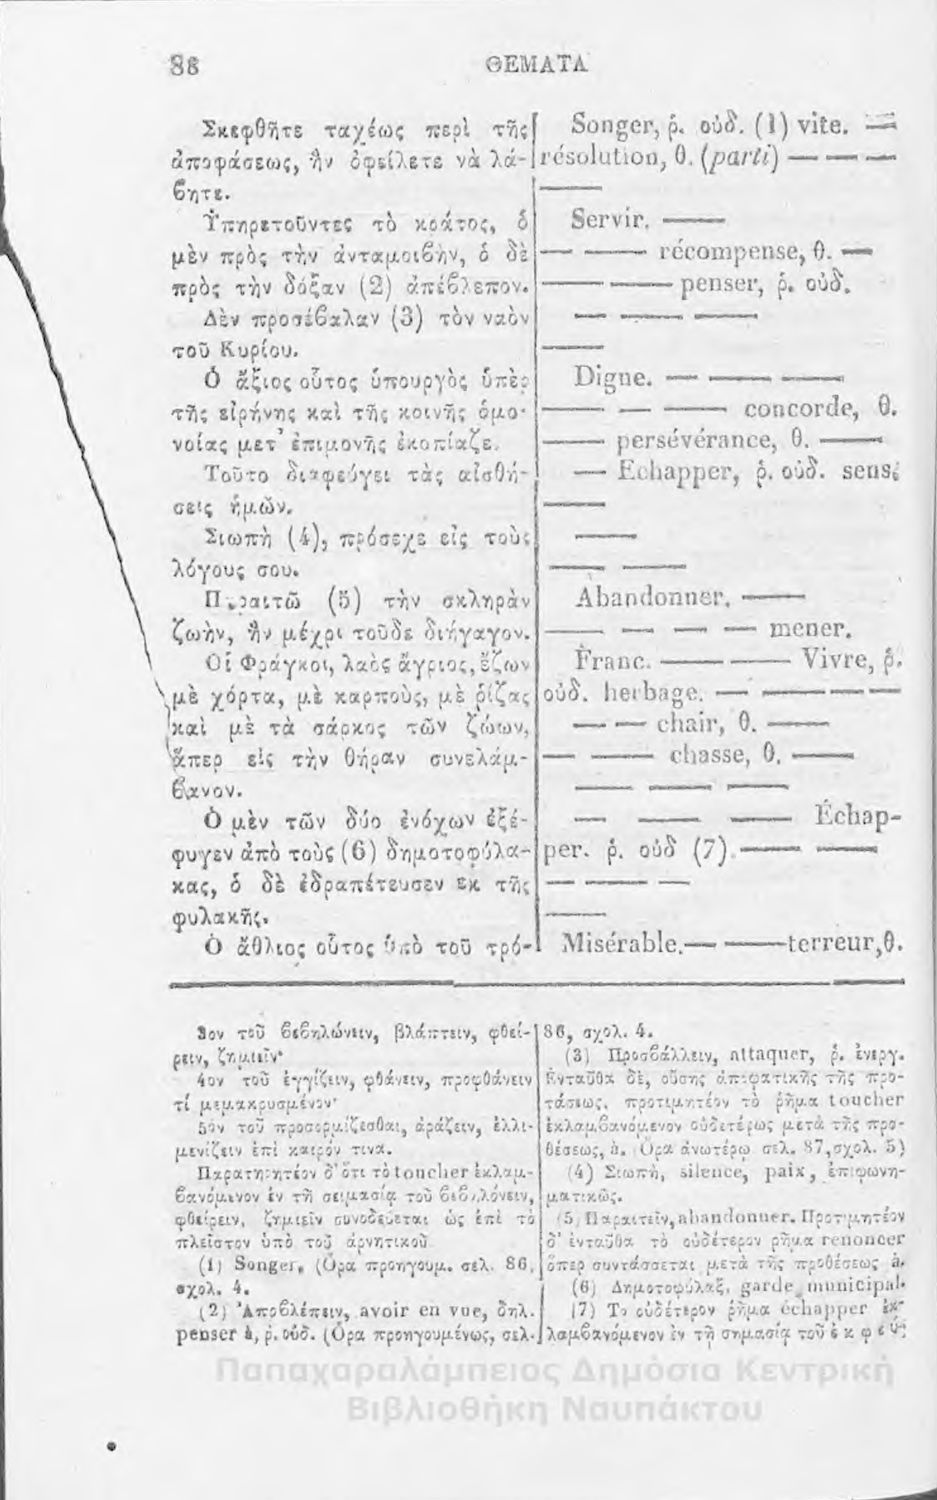 88
ΘΕΜΑΤΑ
Σκεφθῆτε ταχέως περὶ τῆς
ἀποφάσεως, ἣν ὀφείλετε νὰ λά-
βητε.
Ὑπηρετοῦντες τὸ κράτος, ὁ
μὲν πρὸς τὴν ἀνταμοιβὴν, ὁ δὲ
πρὸς τὴν δόξαν (2) ἀπέβλεπον.
Δὲν προσέβαλαν (3) τὸν ναὸν
τοῦ Κυρίου.
Ὁ ἄξιος οὗτος ὑπουργὸς ὑπὲρ
τῆς εἰρήνης καὶ τῆς κοινῆς ὁμο-
νοίας μετ' ἐπιμονῆς ἐκοπίαζε.
Τοῦτο διαφεύγει τὰς αἰσθή-
σεις ἡμῶν.
Σιωπὴ (4), πρόσεχε εἰς τοὺς
λόγους σου.
Παραιτῶ (5) τὴν σκληρὰν
ζωὴν, ἣν μέχρι τοῦδε διήγαγον.
Οἱ Φράγκοι, λαὸς ἄγριος, ἔζων
μὲ χόρτα, μὲ καρποὺς, μὲ ῥίζας
καὶ μὲ τὰ σάρκας τῶν ζώων,
ἅπερ εἰς τὴν θήραν συνελάμ-
βανον.
Ὁ μὲν τῶν δύο ἐνόχων ἐξέ-
φυγεν ἀπὸ τοὺς (6) δημοτοφύλα-
κας, ὁ δὲ ἐδραπέτευσεν ἐκ τῆς
φυλακῆς.
Ὁ ἄθλιος οὗτος ὑπὸ τοῦ τρό-
Songer, ῥ. οὐδ. (1) vite. —
résolution, θ. (parti) — — —
—
Servir. —
— — récompense, θ. —
— — penser, ῥ. οὐδ.
— — —
—
Digne. — — —
— — — concorde, θ.
— persévérance, θ. —
— Echapper, ῥ. οὐδ. sens,
—
—
— —
Abandonner. —
— — — — mener.
Franc. — — Vivre, ῥ.
οὐδ. herbage. — — — —
— — chair, θ. —
— — chasse, θ. —
— — —
— — — Échap-
per. ῥ. οὐδ (7). — —
— — —
—
Misérable. — — terreur, θ.
3ον τοῦ βεβηλώνειν, βλάπτειν, φθεί-
ρειν, ζημιεῖν·
4ον τοῦ ἐγγίζειν, φθάνειν, προφθάνειν
τί μεμακρυσμένον·
5ον τοῦ προσορμίζεσθαι, ἀράζειν, ἐλλι-
μενίζειν ἐπὶ καιρόν τινα.
Παρατηρητέον δ' ὅτι τὸ toucher ἐκλαμ-
βανόμενον ἐν τῇ σημασίᾳ τοῦ βεβηλόνειν,
φθείρειν, ζημιεῖν συνοδεύεται ὡς ἐπὶ τὸ
πλεῖστον ὑπὸ τοῦ ἀρνητικοῦ
(1) Songer, (Ὅρα προηγουμ. σελ. 86,
σχολ. 4.
(2) Ἀποβλέπειν, avoir en vue, δηλ.
penser à, ῥ. οὐδ. (Ὅρα προηγουμένως, σελ.
86, σχολ. 4.
(3) Προσβάλλειν, attaquer, ῥ. ἐνεργ.
Ἐνταῦθα δὲ, οὔσης ἀποφατικῆς τῆς προ-
τάσεως, προτιμητέον τὸ ῥῆμα toucher
ἐκλαμβανόμενον οὐδετέρως μετὰ τῆς προ-
θέσεως, à. (Ὅρα ἀνωτέρω σελ. 87, σχολ. 5)
(4) Σιωπὴ, silence, paix, ἐπιφωνη-
ματικῶς.
(5) Παραιτεῖν, abandonner. Προτιμητέον
δ' ἐνταῦθα τὸ οὐδέτερον ῥῆμα renoncer
ὅπερ συντάσσεται μετὰ τῆς προθέσεως à.
(6) Δημοτοφύλαξ, garde municipal.
(7) Το οὐδέτερον ῥῆμα échapper ἐκ-
λαμβανόμενον ἐν τῇ σημασίᾳ τοῦ ἐκφεύ-
Παπαχαραλάμπειος Δημόσια Κεντρική
Βιβλιοθήκη Ναυπάκτου